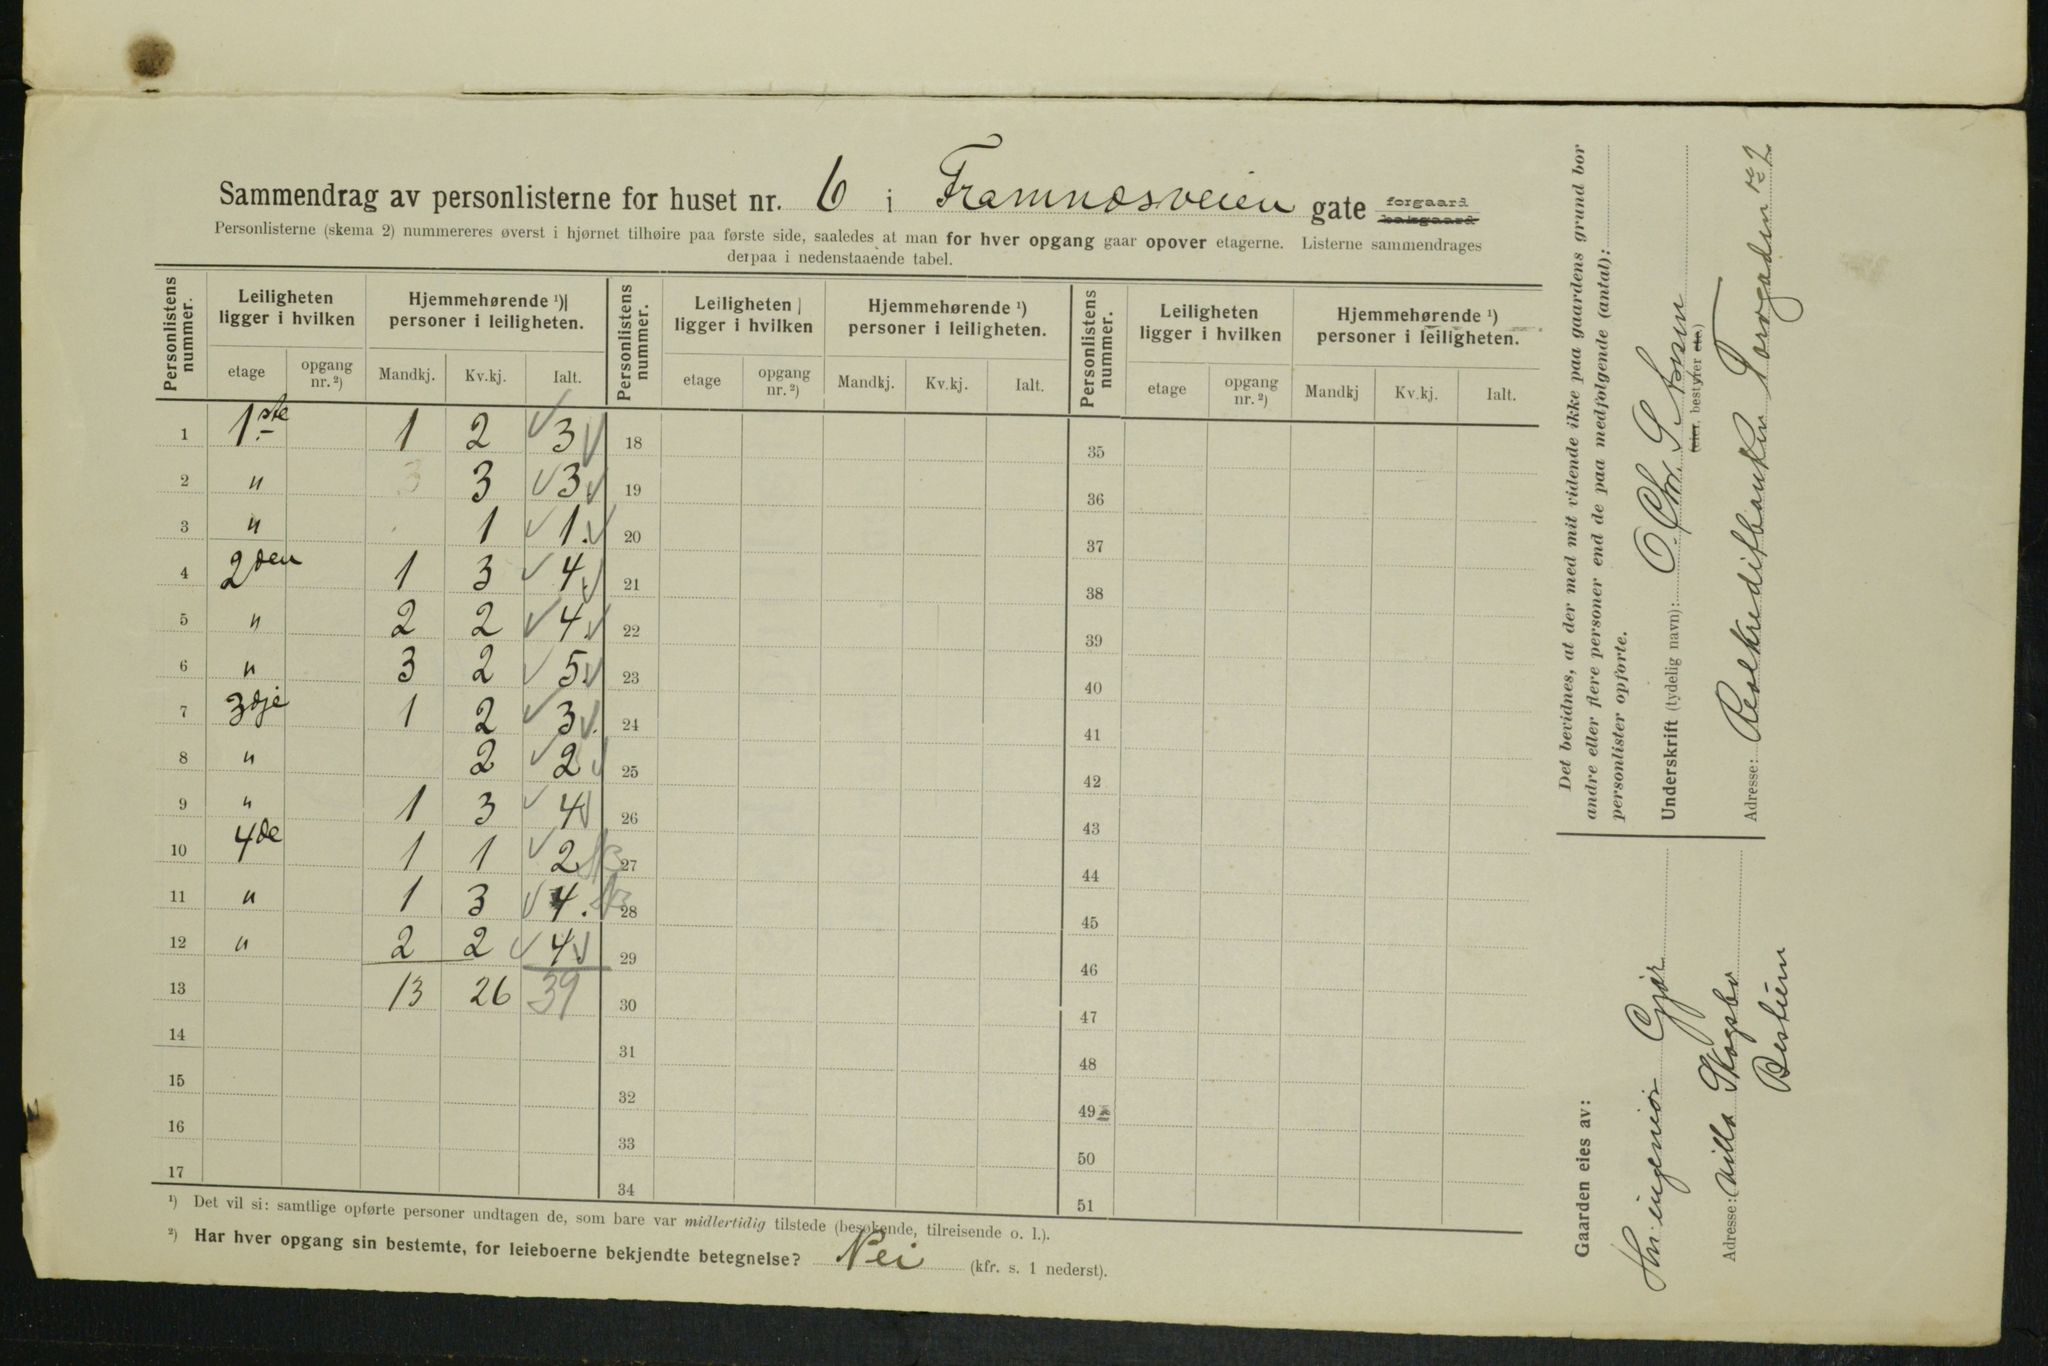 Sammendrag av personlisterne for huset nr. 6 i Framnæsveien gate forgaard bakgaard
Personlisterne (skema 2) nummereres øverst i hjørnet tilhøire paa første side, saaledes at man for hver opgang gaar opover etagerne. Listerne sammendrages
derpaa i nedenstaaende tabel.
Personlistens nummer. Leiligheten ligger i hvilken Hjemmehørende ¹) personer i leiligheten. Personlistens nummer. Leiligheten ligger i hvilken Hjemmehørende ¹) personer i leiligheten. Personlistens nummer. Leiligheten ligger i hvilken Hjemmehørende ¹) personer i leiligheten.
etage opgang nr. ²) Mandkj. Kv.kj. Ialt. etage opgang nr. ²) Mandkj. Kv.kj. Ialt. etage opgang nr. ²) Mandkj Kv.kj. Ialt.
1 1.ste 1 2 √ 3 √ 18 35
2 " 3 3 √ 3 √ 19 36
3 " 1 √ 1. √ 20 37
4 2den 1 3 √ 4 √ 21 38
5 " 2 2 √ 4. √ 22 39
6 " 3 2 √ 5 √ 23 40
7 3dje 1 2 √ 3 √. 24 41
8 " 2 √ 2 √ 25 42
9 " 1 3 √ 4 √ 26 43
10 4de 1 1 √ 2 NB 27 44
11 " 1 3 √ 4. NB 28 45
12 " 2 2 √ 4 √ 29 46
13 13 26 39 30 47
14 31 48
15 32 49
16 33 50
17 34 51
¹) Det vil si: samtlige opførte personer undtagen de, som bare var midlertidig tilstede (besøkende, tilreisende o. l.).
²) Har hver opgang sin bestemte, for leieboerne bekjendte betegnelse? Nei (kfr. s. 1 nederst).
Det bevidnes, at der med mit vidende ikke paa gaardens grund bor
andre eller flere personer end de paa medfølgende (antal):
personlister opførte.
Underskrift (tydelig navn): O. Chr.
eier, bestyrer etc.)
Adresse: Realkreditbanken Torvgaden
Gaarden eies av:
Hr. ingeniør
Adresse: Villa Skogsbo
Bestun